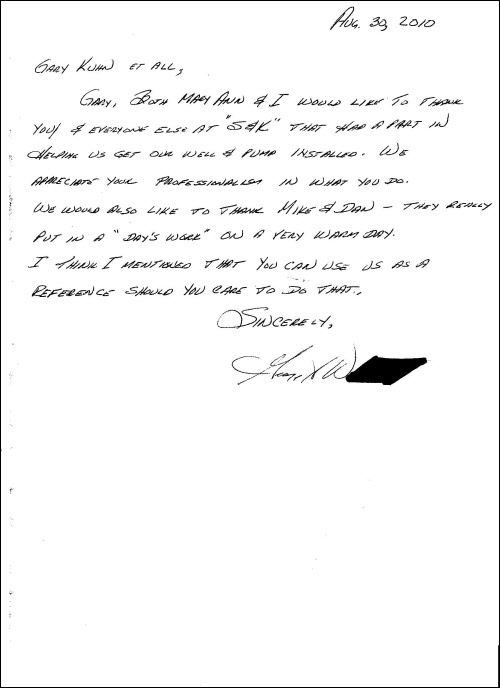 Aug. 30, 2010
Gary Kuhn et all,
Gary, Both Mary Ann & I would like to thank
you & everyone else at "S&K" that had a part in
helping us get our well & pump installed. We
appreciate your professionalism in what you do.
We would also like to thank Mike & Dan - they really
put in a "day's work" on a very warm day.
I think I mentioned that you can use us as a
reference should you care to do that.
Sincerely,